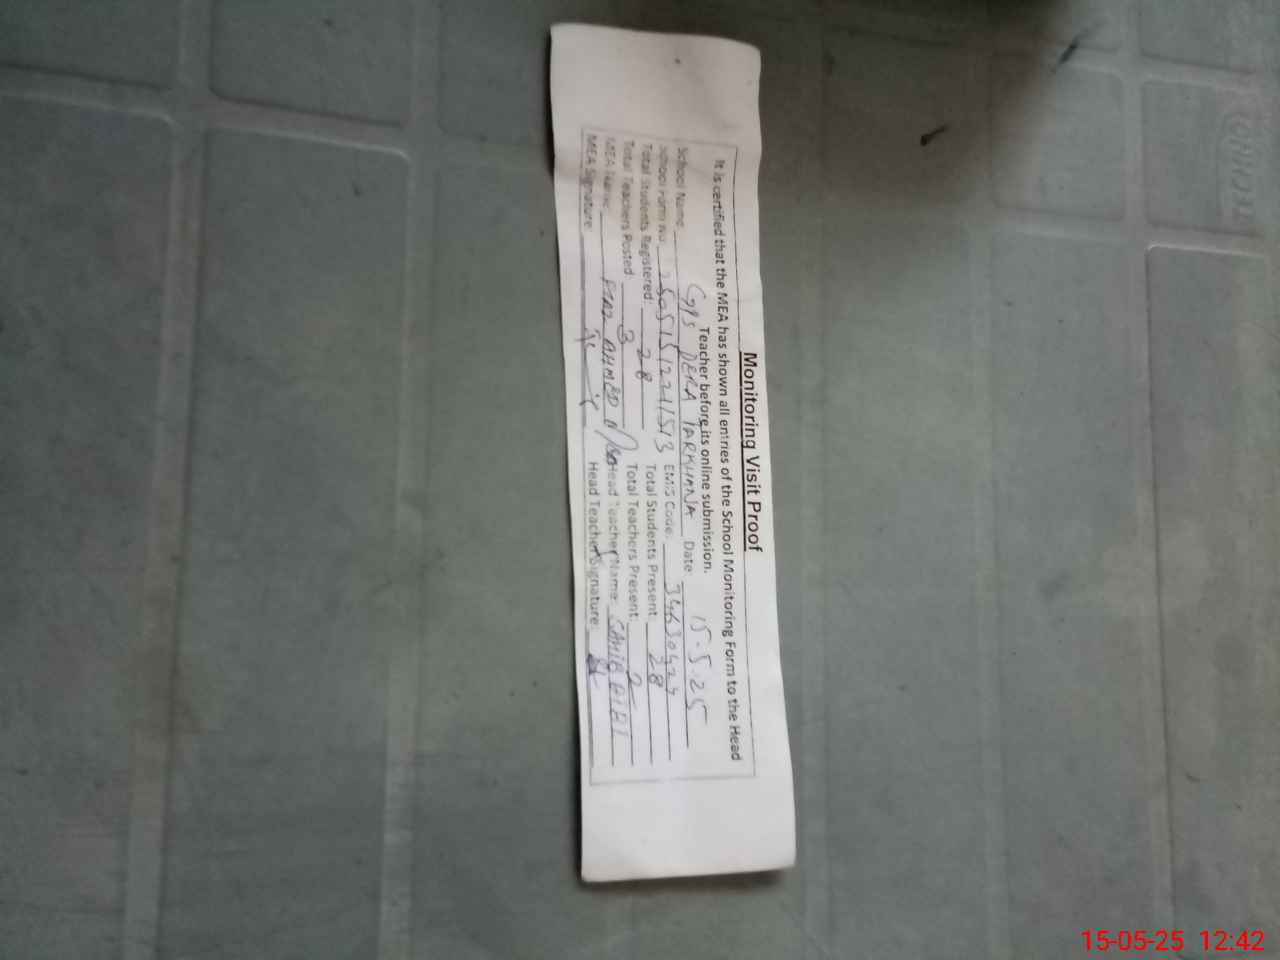 Monitoring Visit Proof
It is certified that the MEA has shown all entries of the School Monitoring Form to the Head
Teacher before its online submission.
School Name: GPS DERA TARKHANA Date: 15.5.25
School Form No: EMIS Code:
Total Students Registered: 28 Total Students Present: 28
Total Teachers Posted: 3 Total Teachers Present: 2
MEA Name: AHMED Head Teacher Name: SAHIB BIBI
MEA Signature: Head Teacher Signature:
15-05-25 12:42